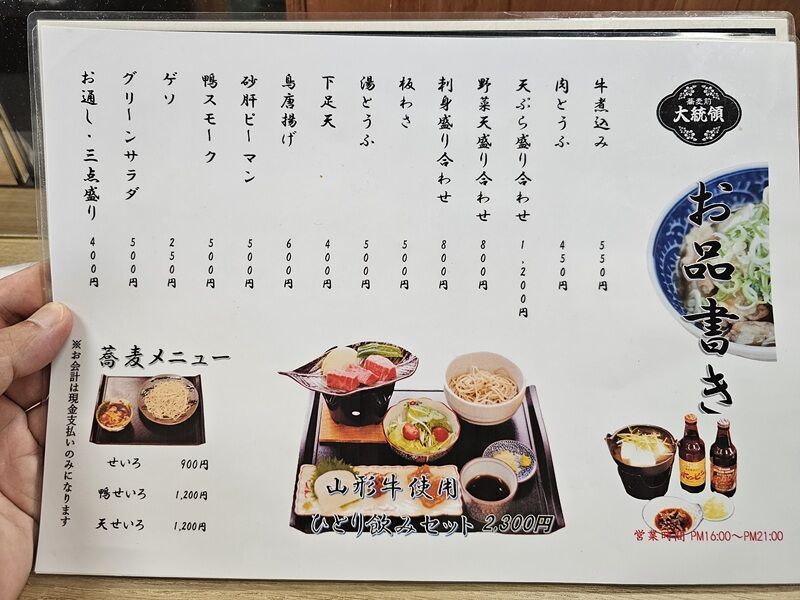 蕎麦前
大統領
お品書き
牛煮込み 550円
肉とうふ 450円
天ぷら盛り合わせ 1,200円
野菜天盛り合わせ 800円
刺身盛り合わせ 800円
板わさ 500円
湯とうふ 500円
下足天 400円
鳥唐揚げ 600円
砂肝ピーマン 500円
鴨スモーク 500円
ゲソ 250円
グリーンサラダ 500円
お通し・三点盛り 400円
蕎麦メニュー
せいろ 900円
鴨せいろ 1,200円
天せいろ 1,200円
※お会計は現金支払いのみになります
山形牛使用
ひとり飲みセット 2,300円
営業時間 PM16:00～PM21:00